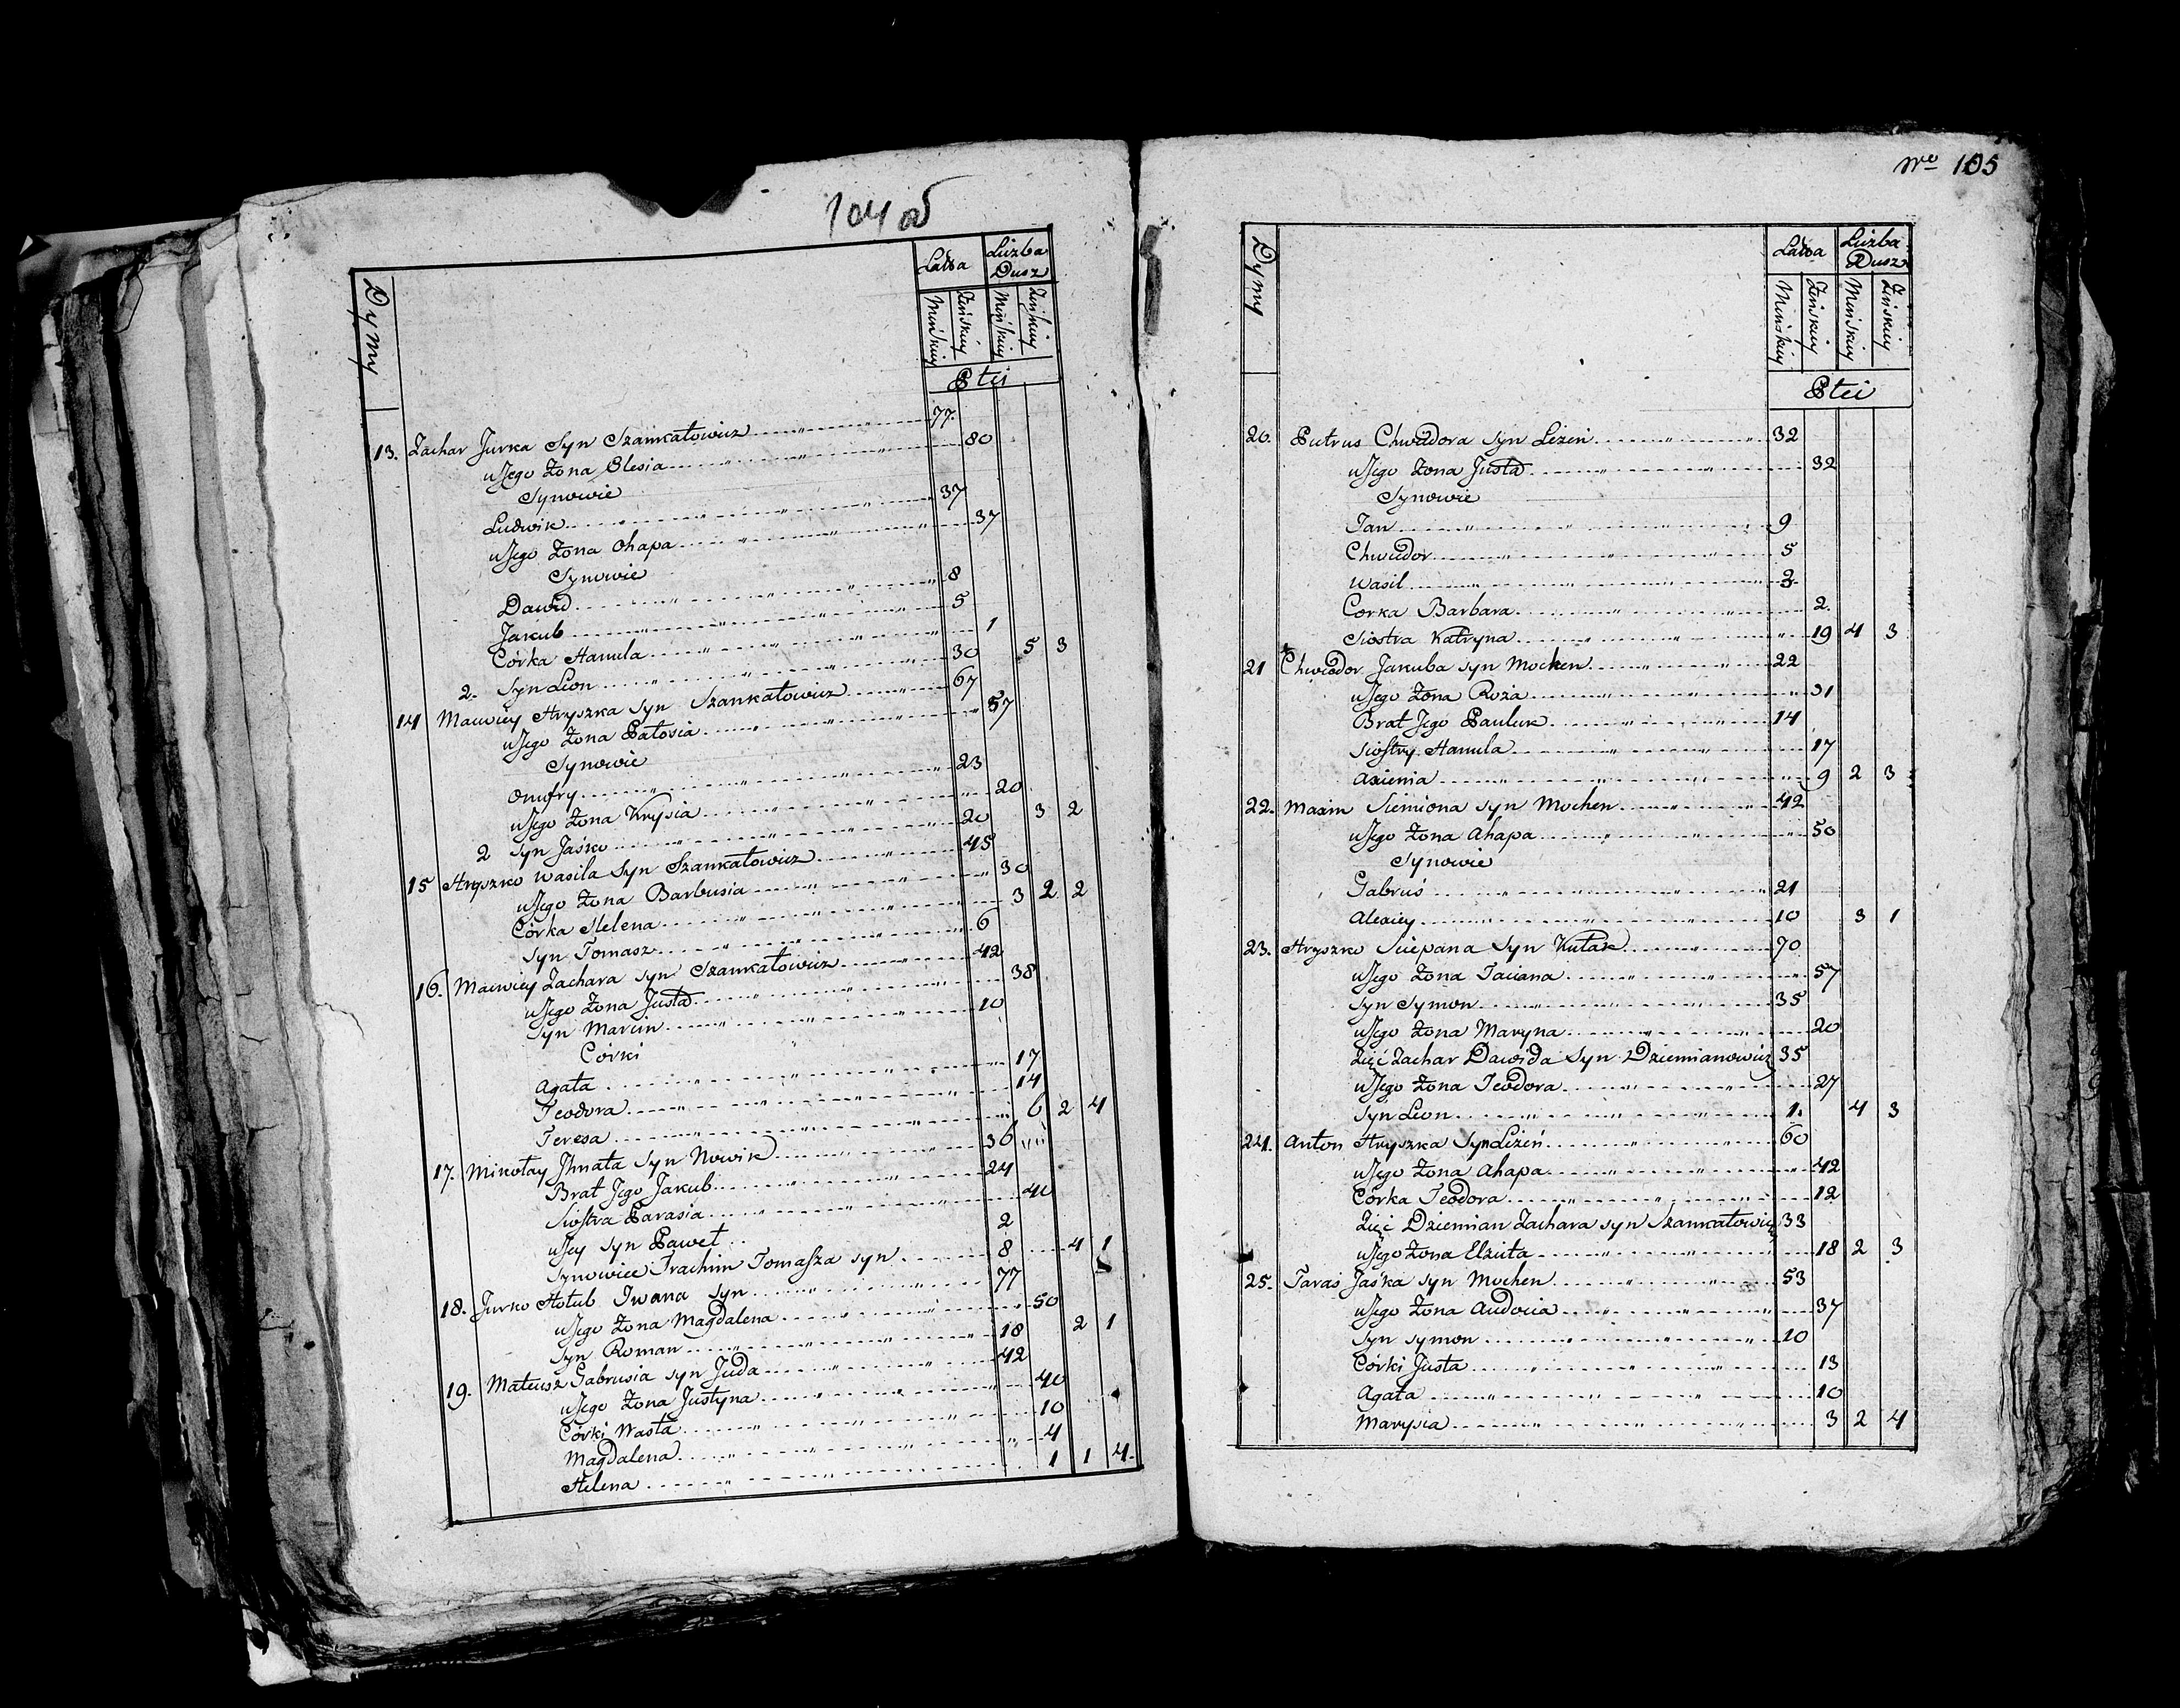 104 об
Dymy
Lata
Liczba Dusz
Męskiey
Żeńskiey
Męskiey
Żeńskiey
Płci
13. Zachar Jurka Syn Szamkałowicz 77.
u Jego Żona Olesia 80
Synowie
Ludwik 37
u Jego Żona Ohapa 37
Synowie
Dawid 8
Jakub 5
Córka Hanula 1
2. Syn Leon 30 5 3
14 Maciey Hryszka Syn Szamkałowicz 67
u Jego Żona Pałosia 57
Synowie
Onufry 23
u Jego Żona Krysia 20
2 Syn Jaśko 20 3 2
15 Hryszko Wasila Syn Szamkałowicz 45
u Jego Żona Barbusia 30
Córka Helena 3 2 2
Syn Tomasz 6
16. Maciey Zachara Syn Szamkałowicz 42
u Jego Żona Justa 38
Syn Marcin 10
Córki
Agata 17
Teodora 14
Teresa 6 2 4
17. Mikołay Jhnata Syn Nowik 36
Brat Jego Jakub 24
Siostra Parasia 40
u Jey Syn Paweł 2
Synowiec Trachim Tomasza Syn 8 4 1
18. Jurko Hołub Iwana Syn 77
u Jego Żona Magdalena 50
Syn Roman 18 2 1
19. Mateusz Gabrusia Syn Juda 42
u Jego Żona Justyna 40
Córki Wasta 10
Magdalena 4
Helena 1 1 4.
No 105
Dymy
Lata
Liczba Dusz
Męskiey
Żeńskiey
Męskiey
Żeńskiey
Płci
20. Pietrus Chwiedora Syn Leżeń 32
u Jego Żona Justa 32
Synowie
Jan 9
Chwiedor 5
Wasil 3
Corka Barbara 2.
Siostra Katryna 19 4 3
21 Chwiedor Jakuba Syn Mochen 22
u Jego Żona Roża 31
Brat Jego Pauluk 14
Siostry Hanula 17
Axienia 9 2 3
22. Maxim Siemiona Syn Mochen 42
u Jego Żona Ahapa 50
Synowie
Gabruś 21
Alexiey 10 3 1
23. Hryszko Sciepana Syn Kutak 70
u Jego Żona Taciana 57
Syn Symon 35
u Jego Żona Maryna 20
Zięć Zachar Dawida Syn Dziemianowicz 35
u Jego Żona Teodora 27
Syn Leon 1. 4 3
24. Anton Hryszka Syn Leżeń 60
u Jego Żona Ahapa 42
Córka Teodora 12
Zięć Dziemian Zachara Syn Szamkałowicz 33
u Jego Żona Elżuta 18 2 3
25. Taraś Jaśka Syn Mochen 53
u Jego Żona Audocia 37
Syn Symon 10
Córki Justa 13
Agata 10
Marysia 3 2 4